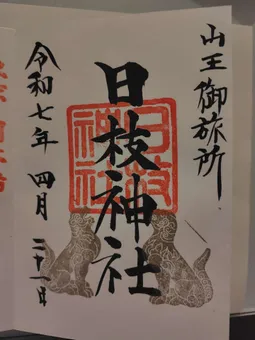 山王御旅所
日枝神社
日枝神社
令和七年四月二十一日